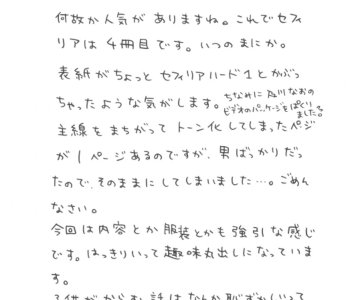 何故か人気がありますね。これでセフィ
リアは4冊目です。いつのまにか。
表紙がちょっとセフィリアハード1とかぶっ
ちゃったような気がします。
ちなみに及川なおの
ビデオのパッケージをぱくり
ました。
主線をまちがってトーン化してしまったページ
が1ページあるのですが、男ばっかりだっ
たので、そのままにしてしまいました…。ごめん
なさい。
今回は内容とか服装とかも強引な感じ
です。はっきりいって趣味丸出しになっていま
す。